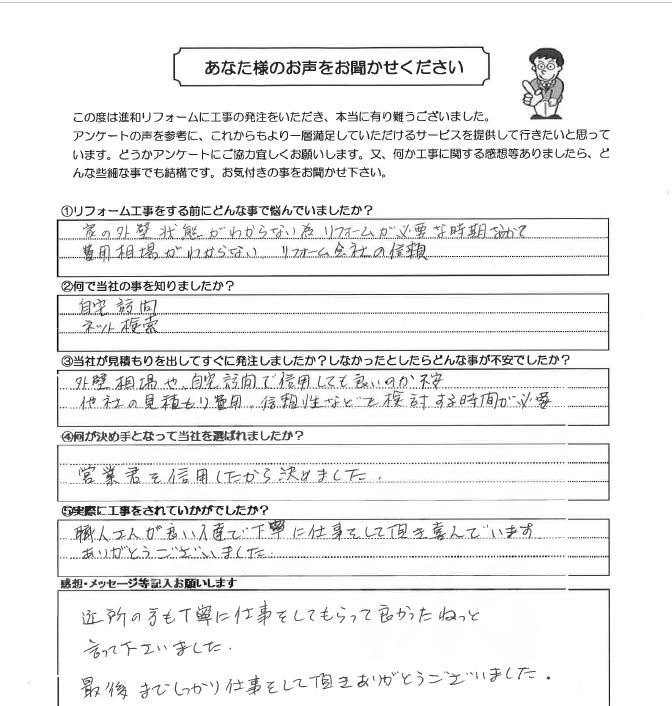 あなた様のお声をお聞かせください
この度は進和リフォームに工事の発注をいただき、本当に有り難うございました。
アンケートの声を参考に、これからもより一層満足していただけるサービスを提供して行きたいと思って
います。どうかアンケートにご協力宜しくお願いします。又、何か工事に関する感想等ありましたら、ど
んな些細な事でも結構です。お気付きの事をお聞かせ下さい。
①リフォーム工事をする前にどんな事で悩んでいましたか？
家の外壁状態がわからない為リフォームが必要な時期
費用相場がわからない リフォーム会社の信頼
②何で当社の事を知りましたか？
自宅訪問
ネット検索
③当社が見積もりを出してすぐに発注しましたか？しなかったとしたらどんな事が不安でしたか？
外壁相場や、自宅訪問で信用しても良いのか不安
他社の見積もり費用。信頼性などを検討する時間が必要
④何が決め手となって当社を選ばれましたか？
営業君を信用したから決めました.
⑤実際に工事をされていかがでしたか？
職人さんが良い人達で丁寧に仕事をして頂き喜んでいます
ありがとうございました.
感想・メッセージ等記入お願いします
近所の方も丁寧に仕事をしてもらって良かったねっと
言って下さいました.
最後までしっかり仕事をして頂きありがとうございました.